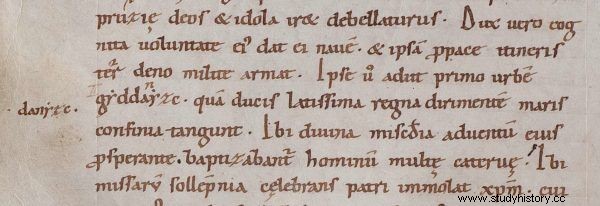 pruzie deos & idola iret debellaturus. Dux uero cog
nita uoluntate ei9 dat ei nauẽ. & ipsã ꝓ pace itineris
ter deno milite armat. Ipse u̾o adiit primo urbẽ
danẏzc. gẏddanẏzc. quã ducis latissima regna dirimentẽ maris
confinia tangunt. Ibi diuina misc̃dia aduentũ eius
ꝓsperante. baptizabant̃ hominũ multę cateruę. Ibi
missarũ sollẽpnia celebrans patri immolat xp̃m. cui
www.studyhistory.cc